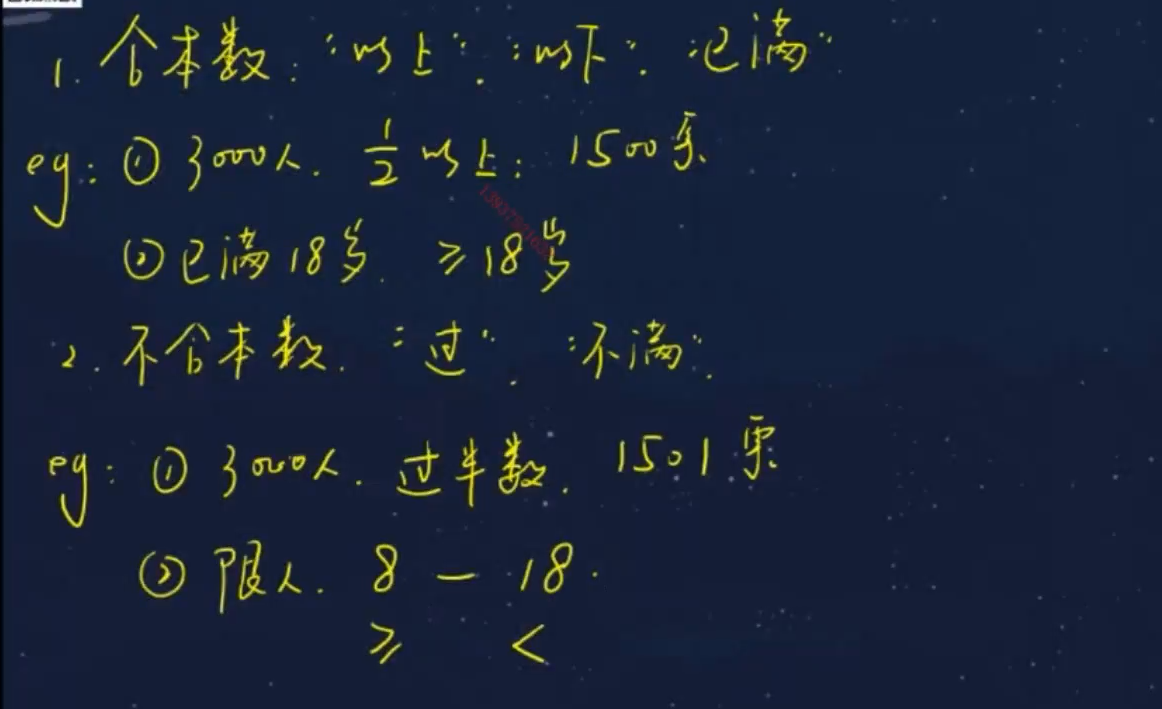 1. 含本数: "以上". "以下". "已满"
eg: ① 3000人. 1/2 以上: 1500票.
② 已满18岁. ≥18岁
2. 不含本数. "过". "不满".
eg: ① 3000人. 过半数. 1501票.
② 限人. 8 — 18.
≥ <